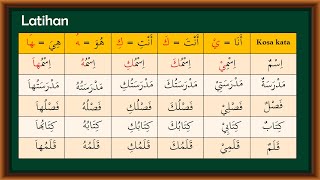 Latihan
هِيَ = ـهَا هُوَ = ـهُ أَنْتِ = كِ أَنْتَ = كَ أَنَا = يْ Kosa kata
اِسْمُهَا اِسْمُهُ اِسْمُكِ اِسْمُكَ اِسْمِيْ اِسْمٌ
مَدْرَسَتُهَا مَدْرَسَتُهُ مَدْرَسَتُكِ مَدْرَسَتُكَ مَدْرَسَتِيْ مَدْرَسَةٌ
فَصْلُهَا فَصْلُهُ فَصْلُكِ فَصْلُكَ فَصْلِيْ فَصْلٌ
كِتَابُهَا كِتَابُهُ كِتَابُكِ كِتَابُكَ كِتَابِيْ كِتَابٌ
قَلَمُهَا قَلَمُهُ قَلَمُكِ قَلَمُكَ قَلَمِيْ قَلَمٌ